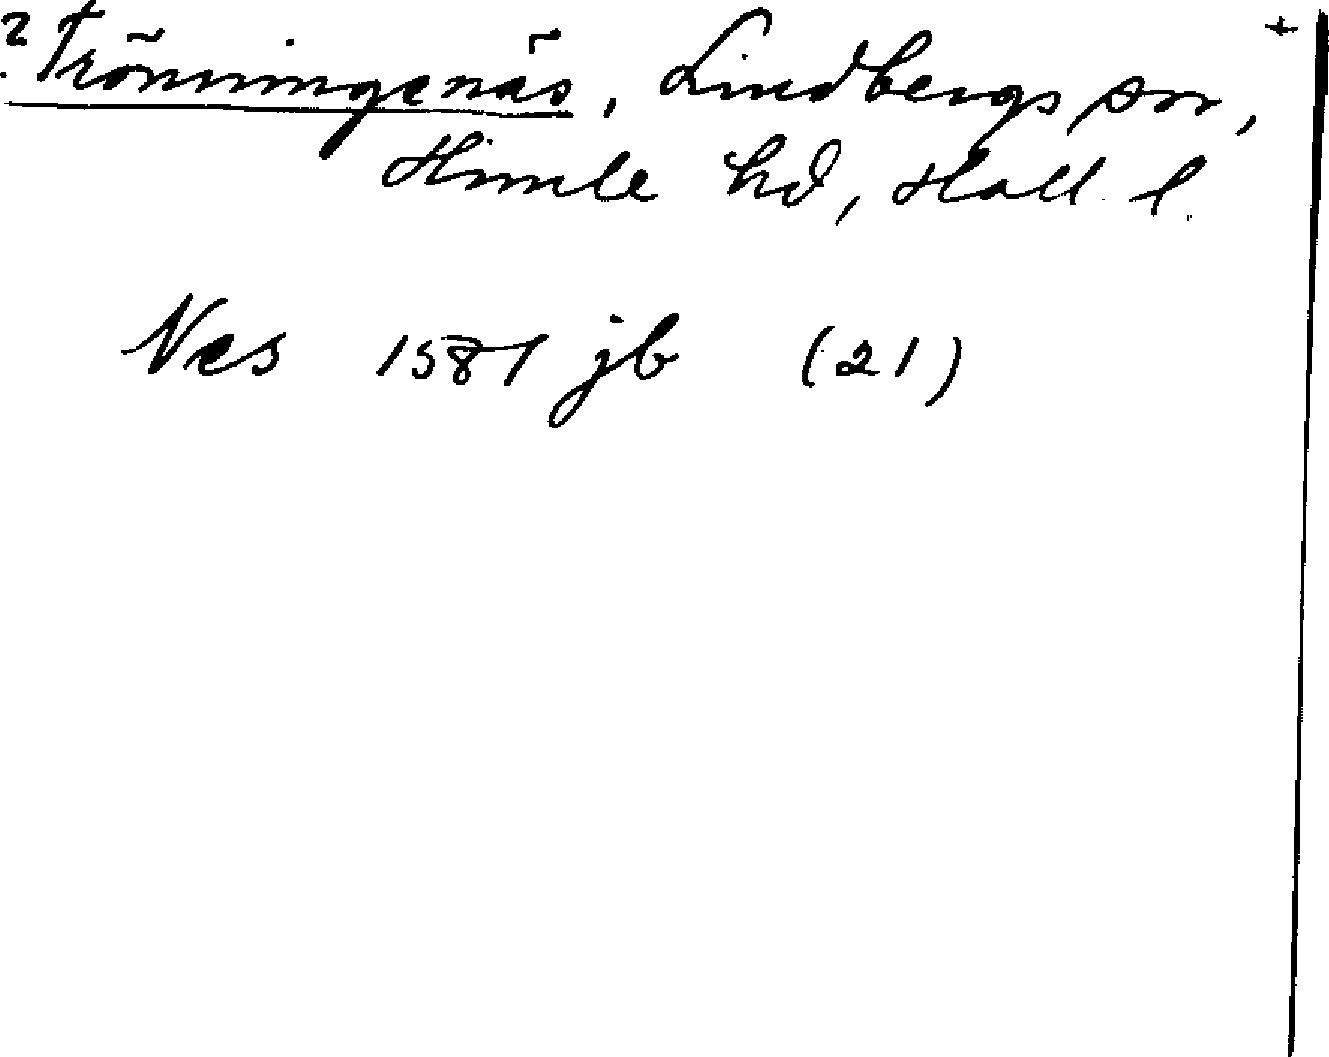 ? Trönningenäs, Lindbergs sn, +
Himle hd, Hall. l.
Nes 1581 jb (21)